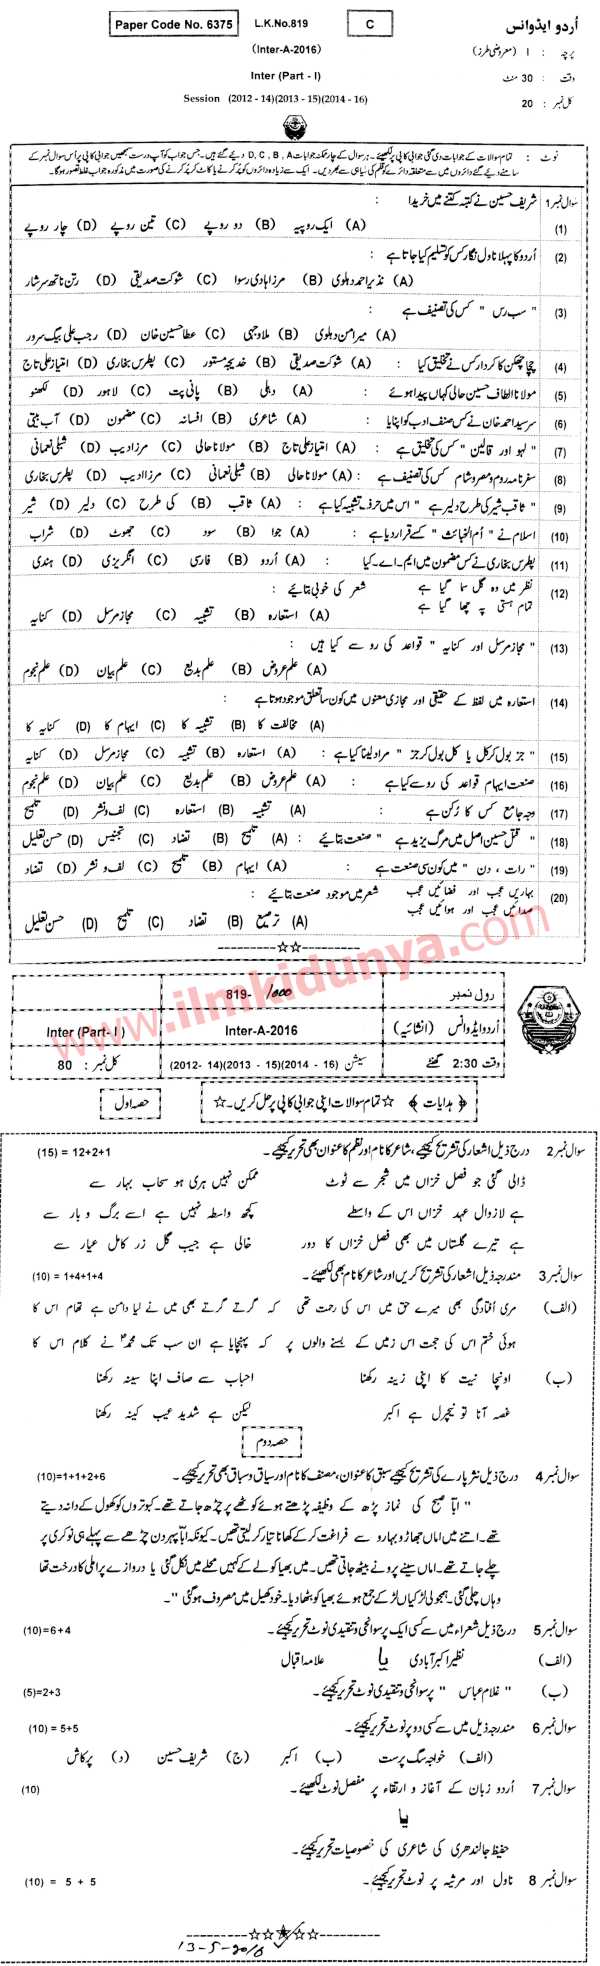 Paper Code No. 6375
L.K.No.819
C
اُردو ایڈوانس
(Inter-A-2016)
پرچہ : I (معروضی طرز)
Inter (Part - I)
وقت : 30 منٹ
Session (2012 - 14)(2013 - 15)(2014 - 16)
کل نمبر: 20
نوٹ : تمام سوالات کے جوابات دی گئی جوابی کاپی پر لکھیئے۔ ہر سوال کے چار ممکنہ جوابات D, C, B, A دیے گئے ہیں۔ جس جواب کو آپ درست سمجھیں جوابی کاپی پر اُس سوال نمبر کے
سامنے دیے گئے دائروں میں سے متعلقہ دائرے کو قلم کی سیاہی سے بھر دیں۔ ایک سے زیادہ دائروں کو پُر کرنے یا کاٹ کر پُر کرنے کی صورت میں مذکورہ جواب غلط تصور ہو گا۔
سوال نمبر 1 شریف حسین نے کتبہ کتنے میں خریدا :
(1) (A) ایک روپیہ (B) دو روپے (C) تین روپے (D) چار روپے
(2) اُردو کا پہلا ناول نگار کس کو تسلیم کیا جاتا ہے :
(A) نذیر احمد دہلوی (B) مرزا ہادی رسوا (C) شوکت صدیقی (D) رتن ناتھ سرشار
(3) " سب رس " کس کی تصنیف ہے :
(A) میر امن دہلوی (B) ملا وجہی (C) عطا حسین خان (D) رجب علی بیگ سرور
(4) چچا چھکن کا کردار کس نے تخلیق کیا : (A) شوکت صدیقی (B) خدیجہ مستور (C) پطرس بخاری (D) امتیاز علی تاج
(5) مولانا الطاف حسین حالی کہاں پیدا ہوئے : (A) دہلی (B) پانی پت (C) لاہور (D) لکھنو
(6) سر سید احمد خان نے کس صنف ادب کو اپنایا : (A) شاعری (B) افسانہ (C) مضمون (D) آپ بیتی
(7) " لہو اور قالین " کس کی تخلیق ہے : (A) امتیاز علی تاج (B) مولانا حالی (C) مرزا ادیب (D) شبلی نعمانی
(8) سفر نامہ روم و مصر و شام کس کی تصنیف ہے : (A) مولانا حالی (B) شبلی نعمانی (C) مرزا ادیب (D) پطرس بخاری
(9) " ثاقب شیر کی طرح دلیر ہے " اس میں حرف تشبیہ کیا ہے : (A) ثاقب (B) کی طرح (C) دلیر (D) شیر
(10) اسلام نے " اُم الخبائث " کسے قرار دیا ہے : (A) جوا (B) سود (C) جھوٹ (D) شراب
(11) پطرس بخاری نے کس مضمون میں ایم۔اے۔ کیا : (A) اُردو (B) فارسی (C) انگریزی (D) ہندی
(12) نظر میں وہ گل سما گیا ہے تمام ہستی پہ چھا گیا ہے شعر کی خوبی بتائیے :
(A) استعارہ (B) تشبیہ (C) مجاز مرسل (D) کنایہ
(13) " مجاز مرسل اور کنایہ " قواعد کی رو سے کیا ہیں :
(A) علم عروض (B) علم بدیع (C) علم بیان (D) علم نجوم
(14) استعارہ میں لفظ کے حقیقی اور مجازی معنوں میں کون سا تعلق موجود ہوتا ہے :
(A) مخالفت کا (B) تشبیہ کا (C) ایہام کا (D) کنایہ کا
(15) " جز بول کر کل یا کل بول کر جز " مراد لینا کیا ہے : (A) استعارہ (B) تشبیہ (C) مجاز مرسل (D) کنایہ
(16) صنعت ایہام قواعد کی رو سے کیا ہے : (A) علم عروض (B) علم بدیع (C) علم بیان (D) علم نجوم
(17) وجہ جامع کس کا رُکن ہے : (A) تشبیہ (B) استعارہ (C) لف و نشر (D) تلمیح
(18) " قتل حسین اصل میں مرگ یزید ہے " صنعت بتائیے : (A) تلمیح (B) تضاد (C) تجنیس (D) حسن تعلیل
(19) " رات ، دن " میں کون سی صنعت ہے : (A) ایہام (B) تلمیح (C) لف و نشر (D) تضاد
(20) بہاریں عجب اور فضائیں عجب صدائیں عجب اور ہوائیں عجب شعر میں موجود صنعت بتائیے :
(A) ترصیع (B) تضاد (C) تلمیح (D) حسن تعلیل
www.ilmkidunya.com
رول نمبر
819-1000
اُردو ایڈوانس (انشائیہ)
Inter-A-2016
Inter (Part- I )
وقت 2:30 گھنٹے
سیشن (2012- 14)(2013 - 15)(2014 - 16)
کل نمبر: 80
﴿ ہدایات ﴾ ☆تمام سوالات اپنی جوابی کاپی پر حل کریں۔☆
حصہ اول
سوال نمبر 2 درج ذیل اشعار کی تشریح کیجیئے ، شاعر کا نام اور نظم کا عنوان بھی تحریر کیجیئے۔ (15) = 12+2+1
ڈالی گئی جو فصل خزاں میں شجر سے ٹوٹ ممکن نہیں ہری ہو سحاب بہار سے
ہے لازوال عہد خزاں اس کے واسطے کچھ واسطہ نہیں ہے اسے برگ و بار سے
ہے تیرے گلستاں میں بھی فصل خزاں کا دور خالی ہے جیب گل زر کامل عیار سے
سوال نمبر 3 مندرجہ ذیل اشعار کی تشریح کریں اور شاعر کا نام بھی لکھیئے۔ (10) = 1+4+1+4
(الف) مری اُفتادگی بھی میرے حق میں اس کی رحمت تھی کہ گرتے گرتے بھی میں نے لیا دامن ہے تھام اس کا
ہوئی ختم اس کی حجت اس زمیں کے بسنے والوں پر کہ پہنچایا ہے ان سب تک محمدؐ نے کلام اس کا
(ب) اونچا نیت کا اپنی زینہ رکھنا احباب سے صاف اپنا سینہ رکھنا
غصہ آنا تو نیچرل ہے اکبر لیکن ہے شدید عیب کینہ رکھنا
حصہ دوم
سوال نمبر 4 درج ذیل نثر پارے کی تشریح کیجیئے سبق کا عنوان، مصنف کا نام اور سیاق و سباق بھی تحریر کیجیئے۔ (10)=1+1+2+6
" ابا صبح کی نماز پڑھ کے وظیفہ پڑھتے ہوئے کوٹھے پر چڑھ جاتے تھے۔ کبوتروں کو کھول کے دانہ دیتے
تھے۔ اتنے میں اماں جھاڑو بہارو سے فراغت کر کے کھانا تیار کر لیتی تھیں۔ کیونکہ ابا پہر دن چڑھے سے پہلے ہی نوکری پر
چلے جاتے تھے۔ اماں سینے پرونے بیٹھ جاتی تھیں۔ میں بھیا کو لے کے کہیں محلے میں نکل گئی یا دروازے پر املی کا درخت تھا
وہاں چلی گئی۔ ہمجولی لڑکیاں لڑکے جمع ہوئے بھیا کو بٹھا دیا۔ خود کھیل میں مصروف ہو گئی "۔
سوال نمبر 5 درج ذیل شعراء میں سے کسی ایک پر سوانحی و تنقیدی نوٹ تحریر کیجیئے۔ (10)=6+4
(الف) نظیر اکبر آبادی یا علامہ اقبال
(ب) " غلام عباس " پر سوانحی و تنقیدی نوٹ تحریر کیجیئے۔ (5)=2+3
سوال نمبر 6 مندرجہ ذیل میں سے کسی دو پر نوٹ تحریر کیجیئے۔ (10) = 5+5
(الف) خواجہ سگ پرست (ب) اکبر (ج) شریف حسین (د) پرکاش
سوال نمبر 7 اُردو زبان کے آغاز و ارتقاء پر مفصل نوٹ لکھیئے۔ (10)
یا
حفیظ جالندھری کی شاعری کی خصوصیات تحریر کیجیئے۔
سوال نمبر 8 ناول اور مرثیہ پر نوٹ تحریر کیجیئے۔ (10) = 5 + 5
13-5-2016